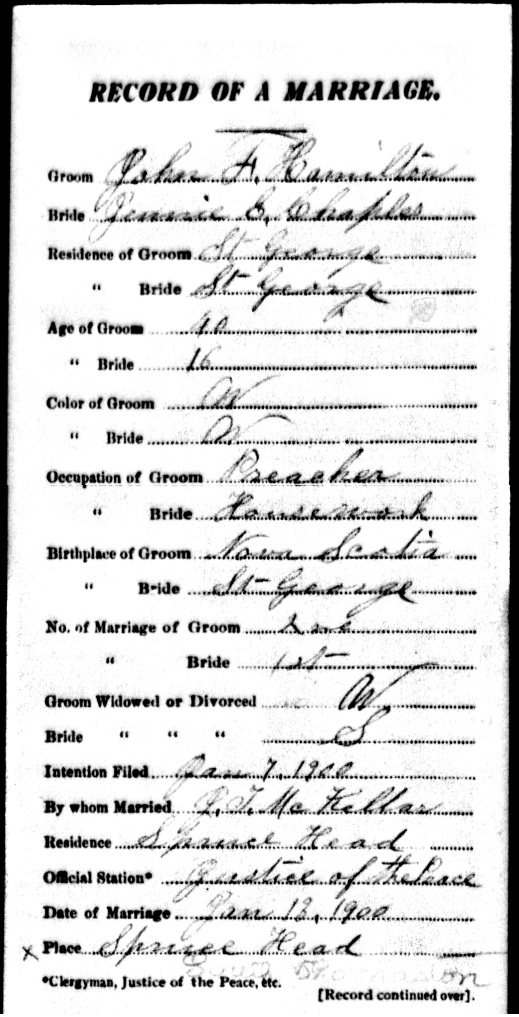 RECORD OF A MARRIAGE.
Groom John F. Hamilton
Bride Jennie E. Chaples
Residence of Groom St George
" Bride St George
Age of Groom 40
" Bride 16
Color of Groom W
" Bride W
Occupation of Groom Preacher
" Bride Housework
Birthplace of Groom Nova Scotia
" Bride St George
No. of Marriage of Groom 2nd
" Bride 1st
Groom Widowed or Divorced W
Bride " " " S
Intention Filed Jan 7, 1900
By whom Married J. T. McKellar
Residence Spruce Head
Official Station* Justice of the Peace
Date of Marriage Jan 13, 1900
x Place Spruce Head
*Clergyman, Justice of the Peace, etc.
[Record continued over].